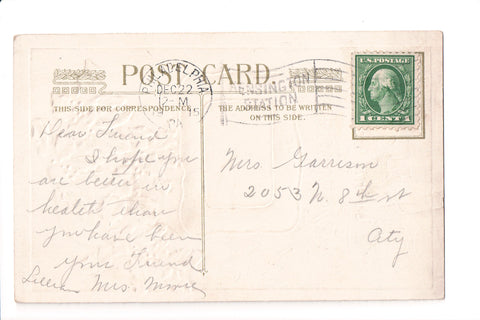 POST CARD.
PHILADELPHIA
DEC 22
12-M
15
PA
KENSINGTON
STATION
U.S. POSTAGE
1 CENT 1
THIS SIDE FOR CORRESPONDENCE
THE ADDRESS TO BE WRITTEN
ON THIS SIDE.
Dear Friend
I hope you
are better in
health than
you have been
your Friend
Lillian Mrs.
Mrs Garrison
2053 N. 8th st
City